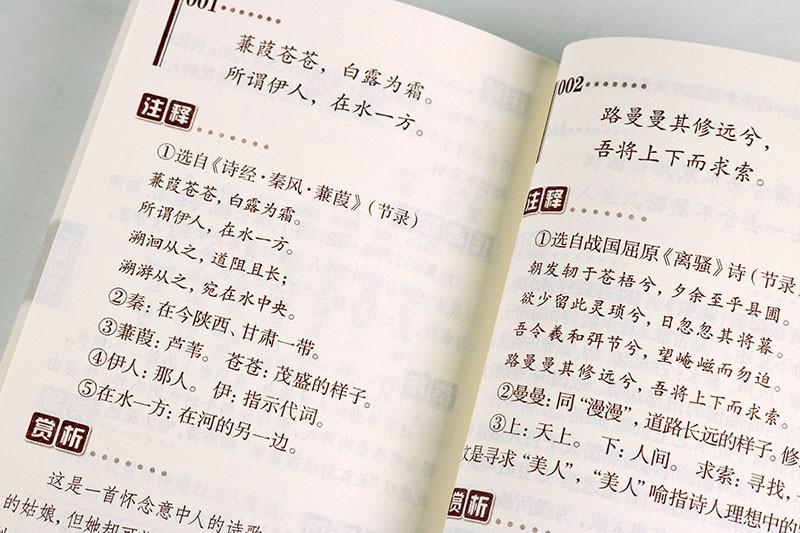 001
蒹葭苍苍，白露为霜。
所谓伊人，在水一方。
注释
①选自《诗经·秦风·蒹葭》（节录）
蒹葭苍苍，白露为霜。
所谓伊人，在水一方。
溯洄从之，道阻且长；
溯游从之，宛在水中央。
②秦：在今陕西、甘肃一带。
③蒹葭：芦苇。 苍苍：茂盛的样子。
④伊人：那人。 伊：指示代词。
⑤在水一方：在河的另一边。
赏析
这是一首怀念意中人的诗歌
的姑娘，但她却可
002
路曼曼其修远兮，
吾将上下而求索。
注释
①选自战国屈原《离骚》诗（节录
朝发轫于苍梧兮，夕余至乎县圃。
欲少留此灵琐兮，日忽忽其将暮。
吾令羲和弭节兮，望崦嵫而勿迫。
路曼曼其修远兮，吾将上下而求索。
②曼曼：同“漫漫”，道路长远的样子。修
③上：天上。 下：人间。 求索：寻找，
是寻求“美人”，“美人”喻指诗人理想中的
赏析